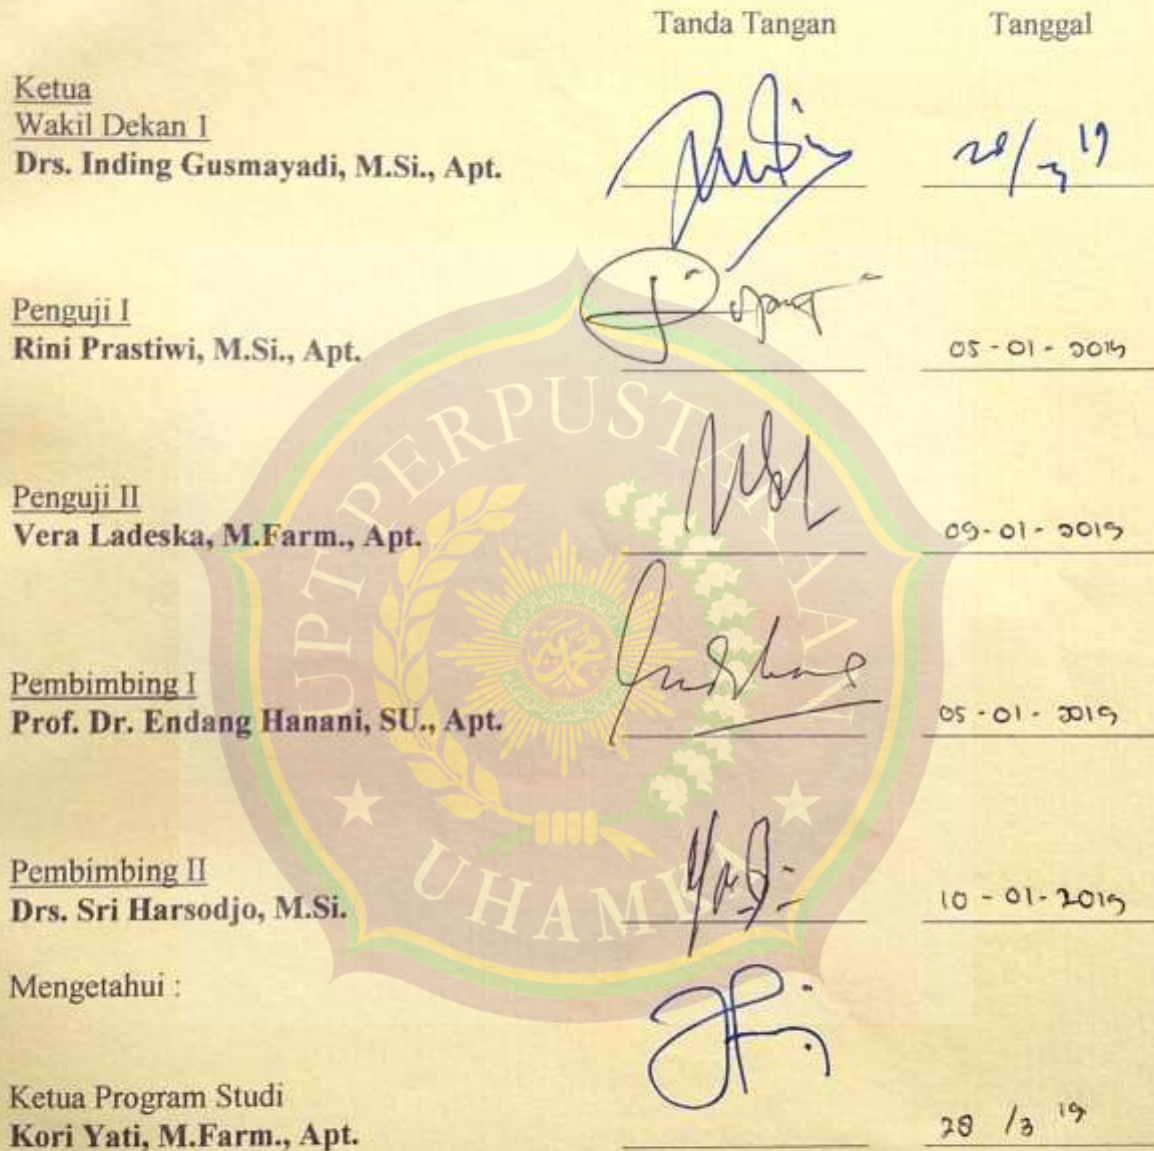 Tanda Tangan Tanggal
Ketua
Wakil Dekan 1
Drs. Inding Gusmayadi, M.Si., Apt.
28/3 19
Penguji I
Rini Prastiwi, M.Si., Apt.
05-01-2019
Penguji II
Vera Ladeska, M.Farm., Apt.
09-01-2019
Pembimbing I
Prof. Dr. Endang Hanani, SU., Apt.
05-01-2019
Pembimbing II
Drs. Sri Harsodjo, M.Si.
10-01-2019
Mengetahui :
Ketua Program Studi
Kori Yati, M.Farm., Apt.
28 /3 19
UPT PERPUSTAKAAN
UHAMKA